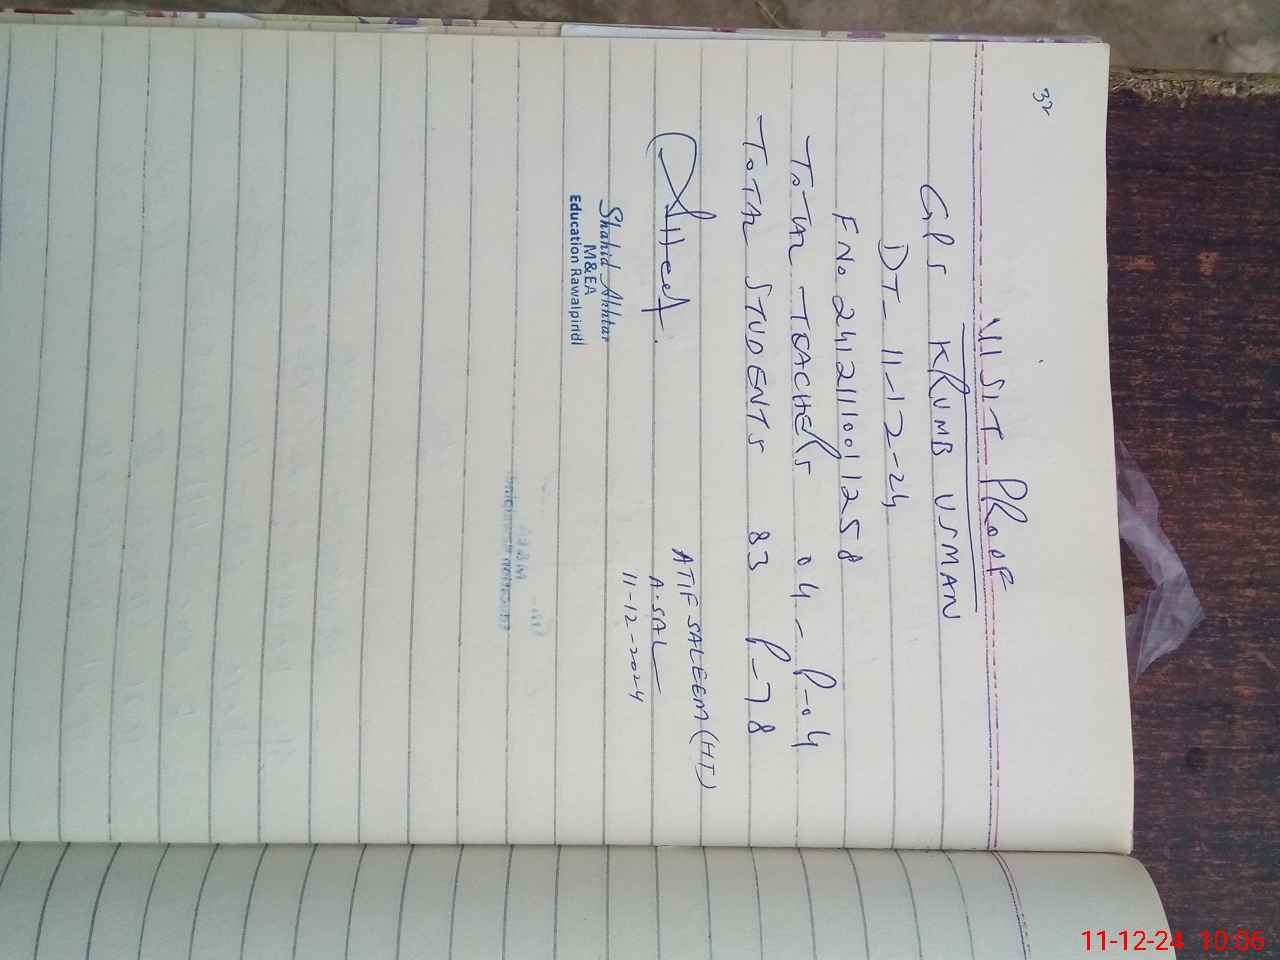 32
VISIT PROOF
GPS KRUMB USMAN
DT- 11-12-24
F No 24121110011258
TOTAL TEACHERS 04 - P-04
TOTAL STUDENTS 83 P-78
Shahid Akhtar
M&EA
Education Rawalpindi
ATIF SALEEM (HT)
A-SAL
11-12-2024
11-12-24 10:06